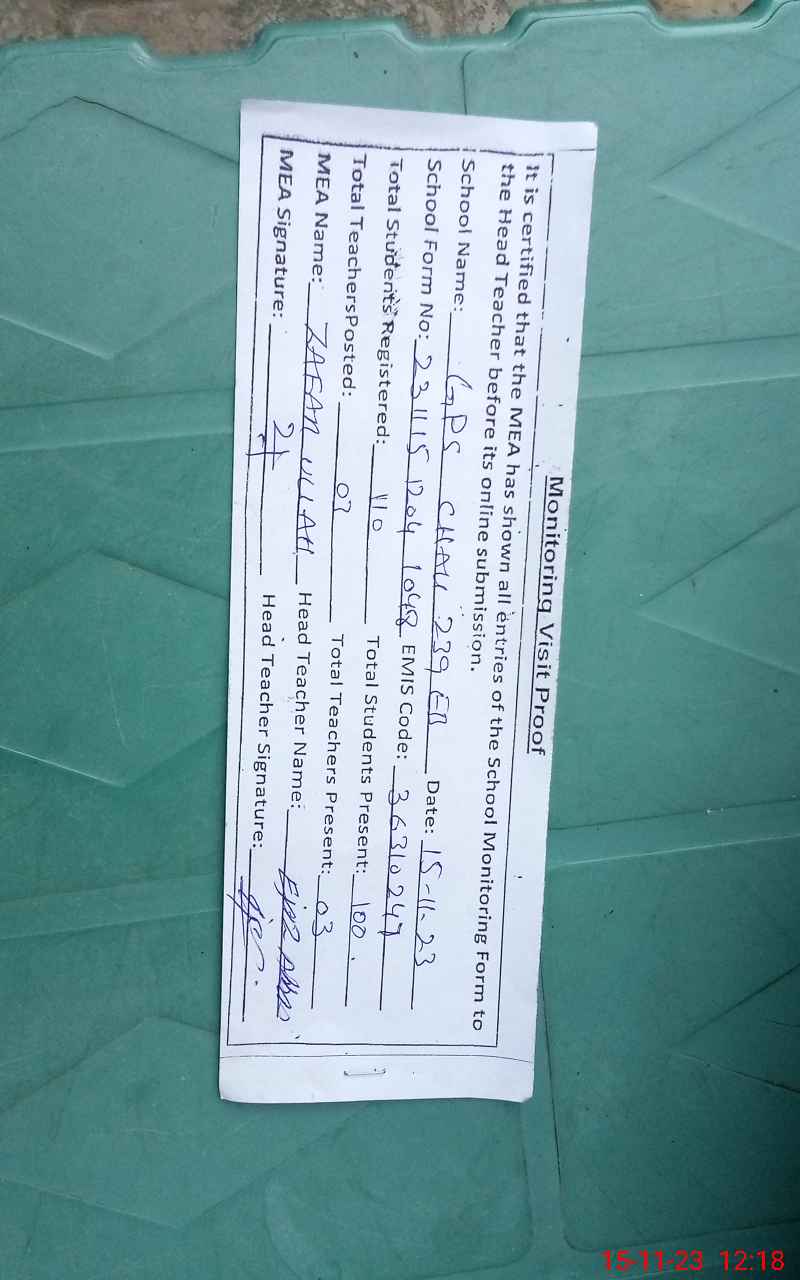 Monitoring Visit Proof
It is certified that the MEA has shown all entries of the School Monitoring Form to
the Head Teacher before its online submission.
School Name: GPS CHAH 239 EB Date: 15-11-23
School Form No: 231115 1204 1048 EMIS Code: 36310247
Total Students Registered: 110 Total Students Present: 100
Total TeachersPosted: 03 Total Teachers Present: 03
MEA Name: ZAFAR ULLAH Head Teacher Name: Ejaz Abbas
MEA Signature: Head Teacher Signature:
15-11-23 12:18